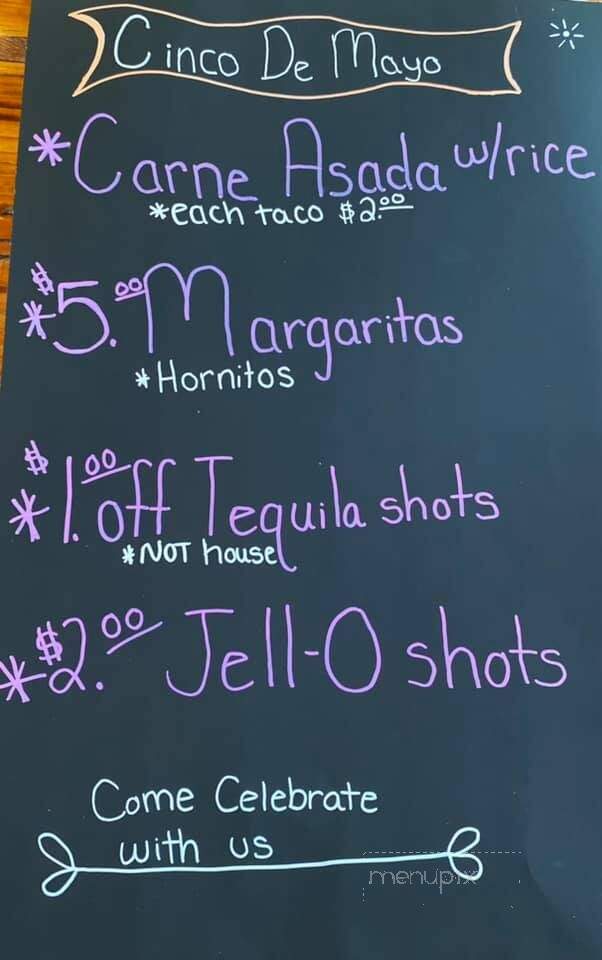 Cinco De Mayo
*Carne Asada w/rice
*each taco $2.00
*$5.00 Margaritas
*Hornitos
*$1.00 off Tequila shots
*NOT house
*$2.00 Jell-O shots
Come Celebrate
with us
menupix